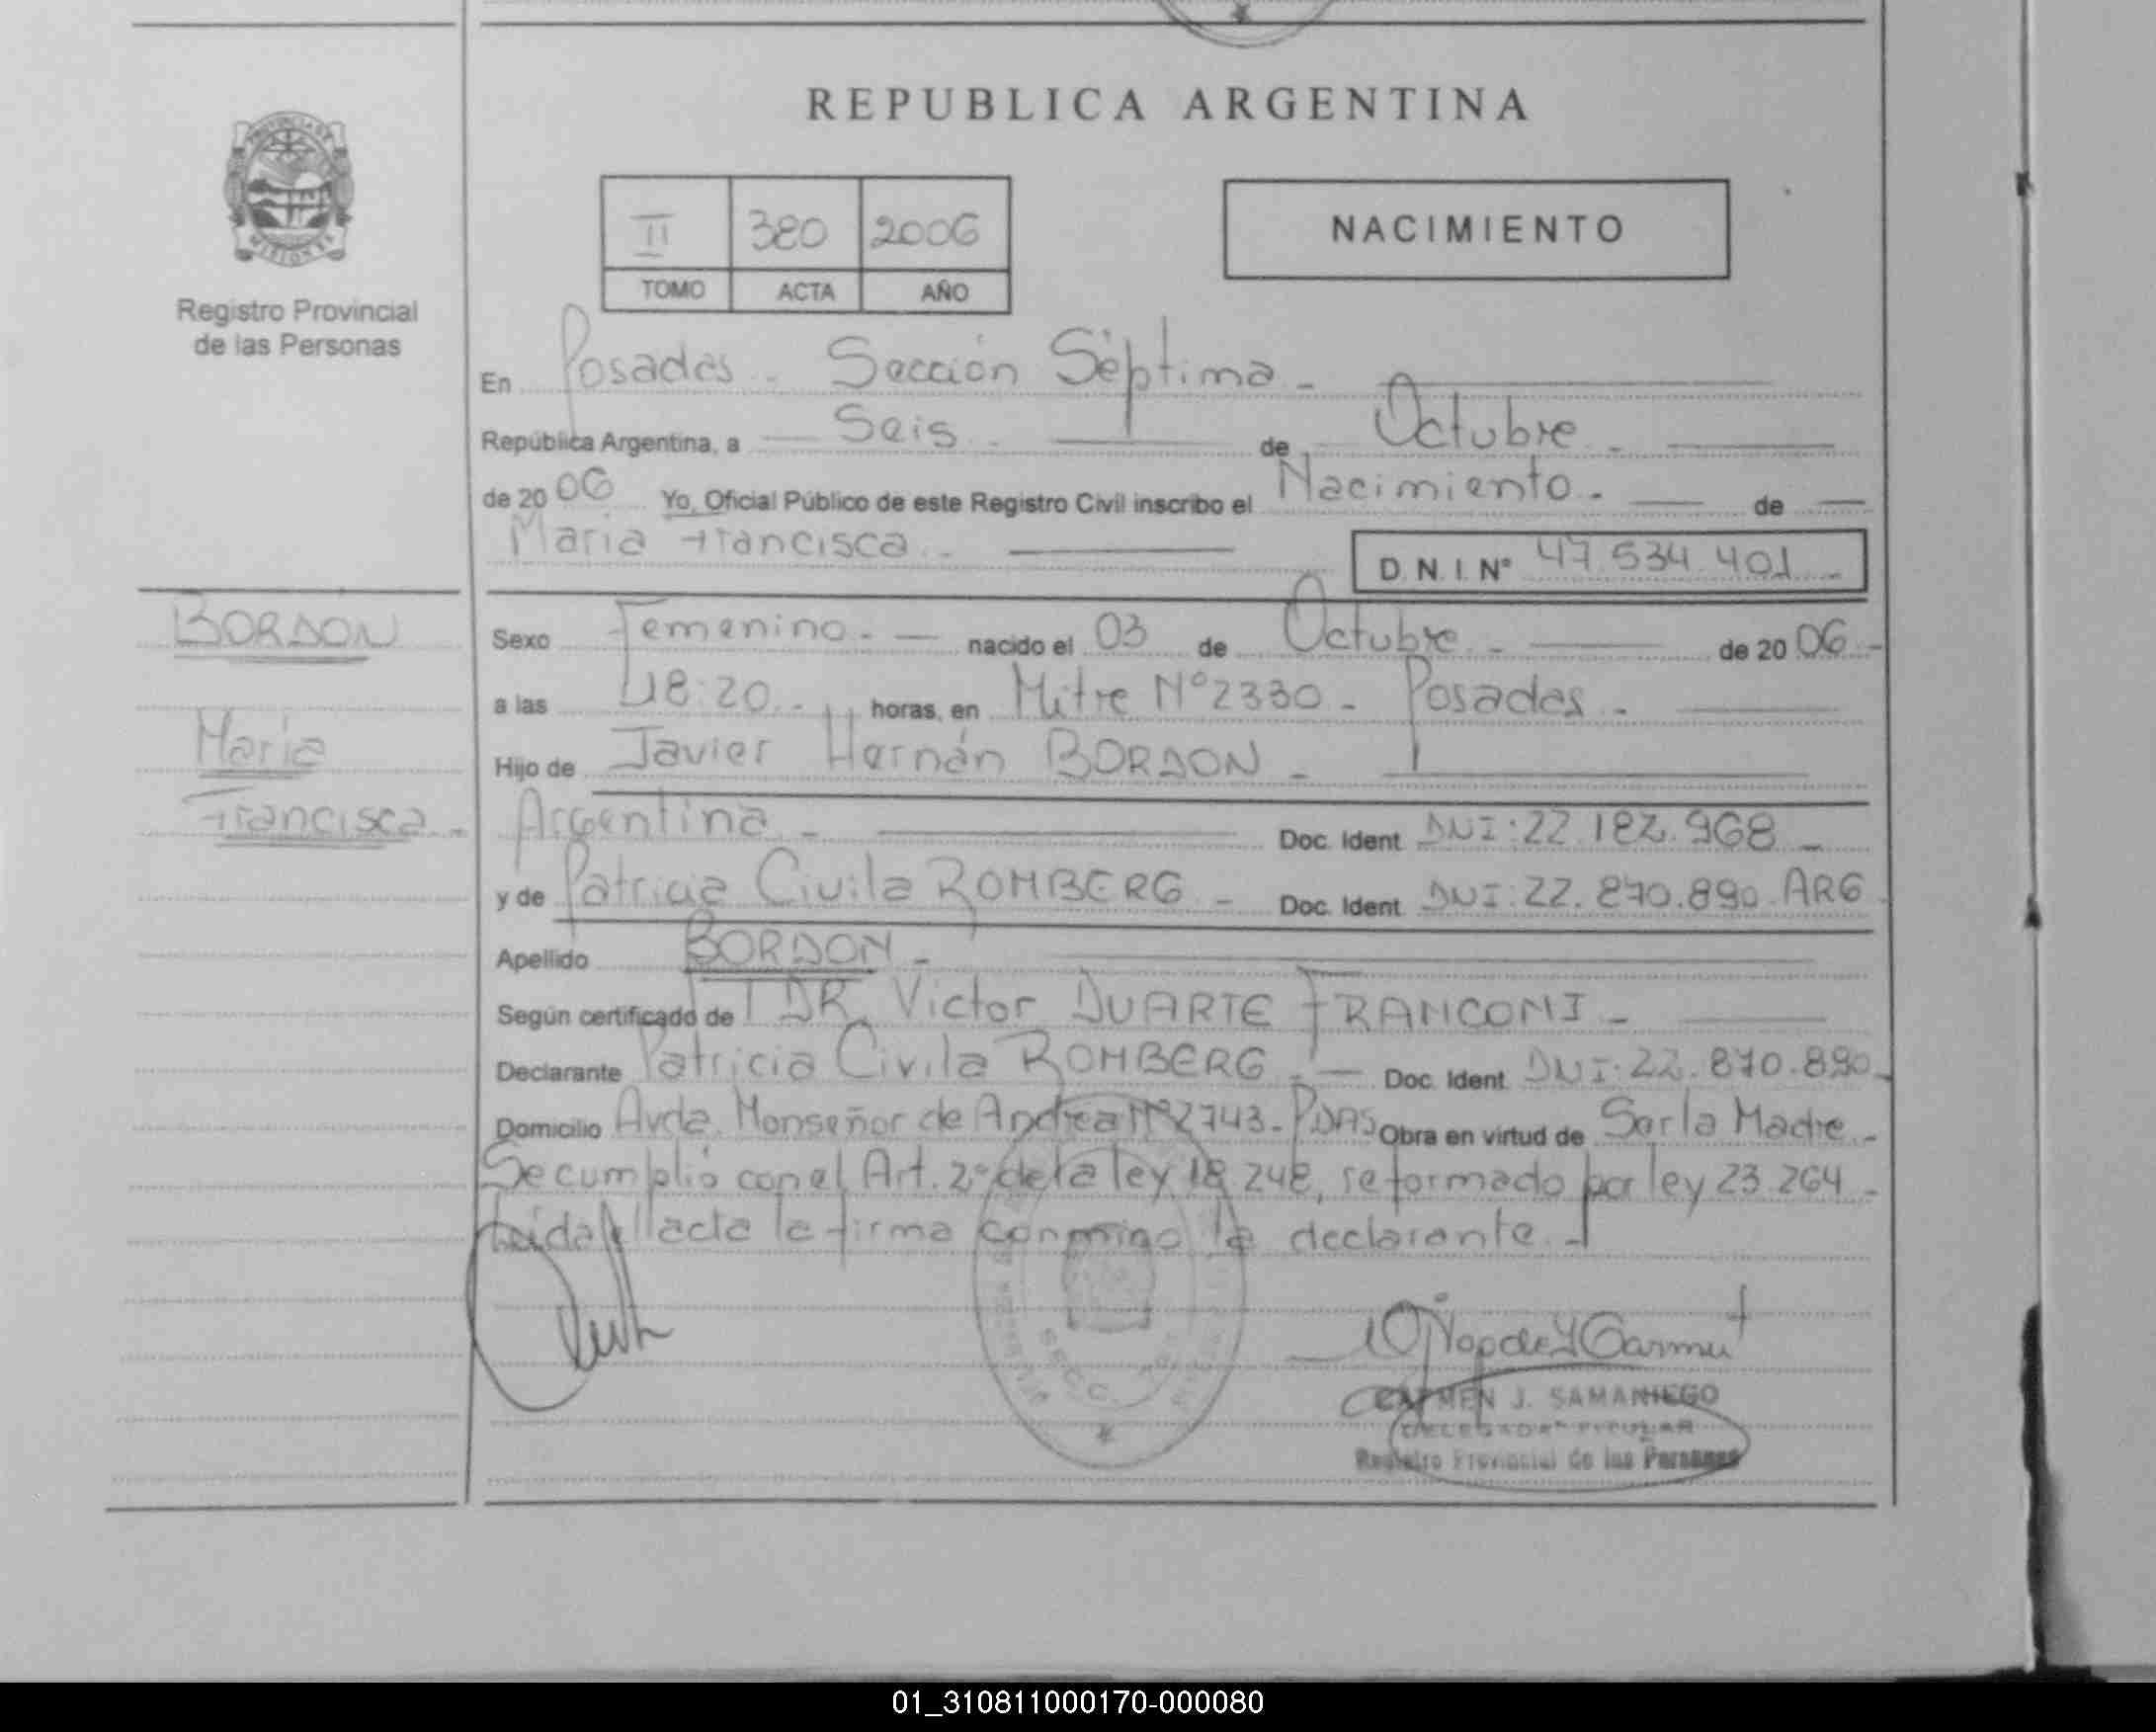 REPUBLICA ARGENTINA
II 380 2006
TOMO ACTA AÑO
NACIMIENTO
Registro Provincial
de las Personas
En Posadas - Sección Séptima -
República Argentina, a Seis - de Octubre -
de 20 06 Yo, Oficial Público de este Registro Civil inscribo el Nacimiento - de
Maria Francisca - D.N.I. Nº 47.534.401 -
BORDON
Maria
Francisca -
Sexo Femenino - nacido el 03 de Octubre - de 20 06 -
a las 18:20 - horas, en Mitre Nº 2330 - Posadas -
Hijo de Javier Hernán BORDON -
Argentina - Doc. Ident. DNI: 22.182.968 -
y de Patricia Civila ROMBERG - Doc. Ident. DNI: 22.870.890 ARG
Apellido BORDON -
Según certificado de DR. Victor DUARTE FRANCONI -
Declarante Patricia Civila ROMBERG - Doc. Ident. DNI: 22.870.890 -
Domicilio Avda. Monseñor de Andrea Nº 2743 - PDAS Obra en virtud de Ser la Madre -
Se cumplió con el Art. 2º de la ley 18.248, reformado por ley 23.264 -
Leída el acta la firma conmigo la declarante -
SECC.
CARMEN J. SAMANIEGO
Registro Provincial de las Personas
01_310811000170-000080